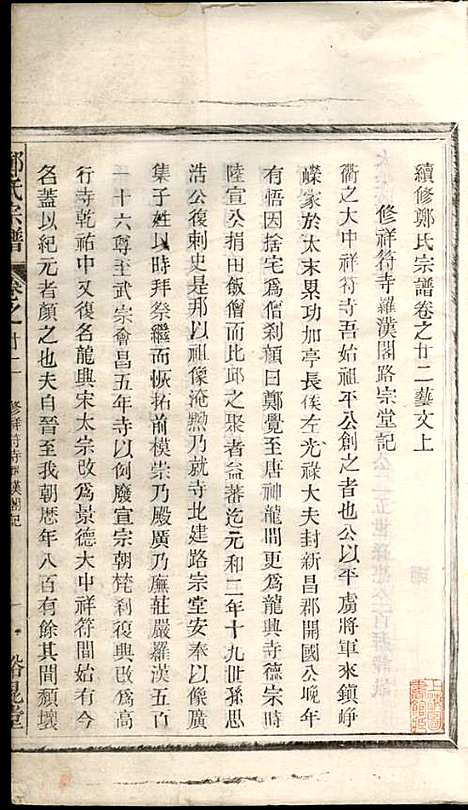 續修鄭氏宗譜卷之廿二藝文上
修祥符寺羅漢閣路宗堂記
衢之大中祥符寺吾始祖平公創之者也公以平虜將軍來鎮崢
嶸家於太末累功加亭長侯左光祿大夫封新昌郡開國公晚年
有悟因捨宅為僧剎額曰鄭覺至唐神龍間更為龍興寺德宗時
陸宣公捐田飯僧而比邱之聚者益蕃迄元和二年十九世孫思
浩公復刺史是邦以祖像淹黝乃就寺北建路宗堂安奉以像廣
集子姓以時拜祭繼而恢拓前模崇乃殿廣乃廡莊嚴羅漢五百
一十六尊至武宗會昌五年寺以例廢宣宗朝梵剎復興改為高
行寺乾祐中又復名龍興宋太宗改為景德大中祥符間始有今
名蓋以紀元者顏之也夫自晉至我朝歷年八百有餘其間頹壞
鄭氏宗譜
卷之廿二
修祥符寺羅漢閣記
一